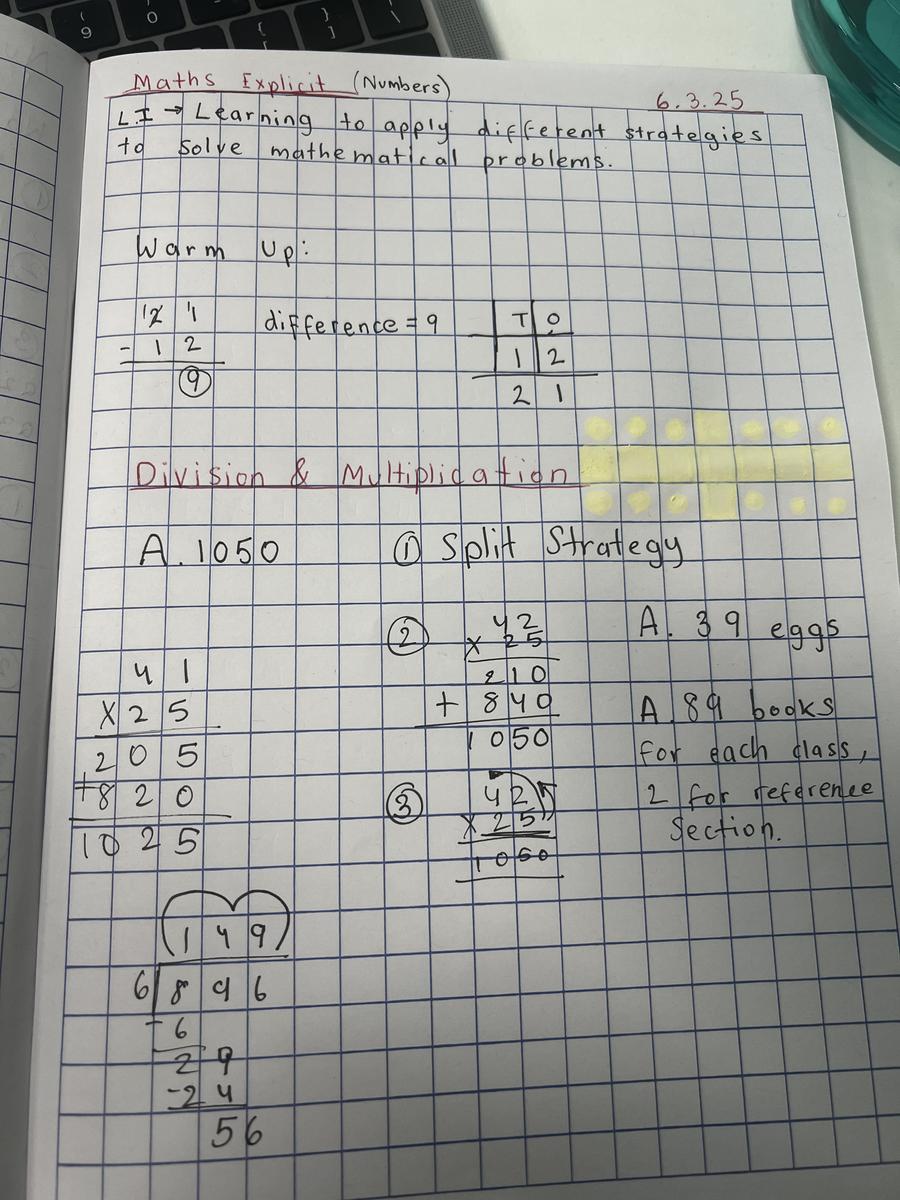 Maths Explicit (Numbers)
6.3.25
LI → Learning to apply different strategies
to solve mathematical problems.
Warm Up:
2 1
- 1 2
9
difference = 9
T O
1 2
2 1
Division & Multiplication
A. 1050
① Split Strategy
4 1
X 2 5
2 0 5
+ 8 2 0
1 0 2 5
②
4 2
x 2 5
2 1 0
+ 8 4 0
1 0 5 0
③
4 2
x 2 5
1 0 5 0
A. 39 eggs
A. 89 books
for each class,
2 for reference
Section.
1 4 9
6 8 9 6
- 6
2 9
- 2 4
5 6